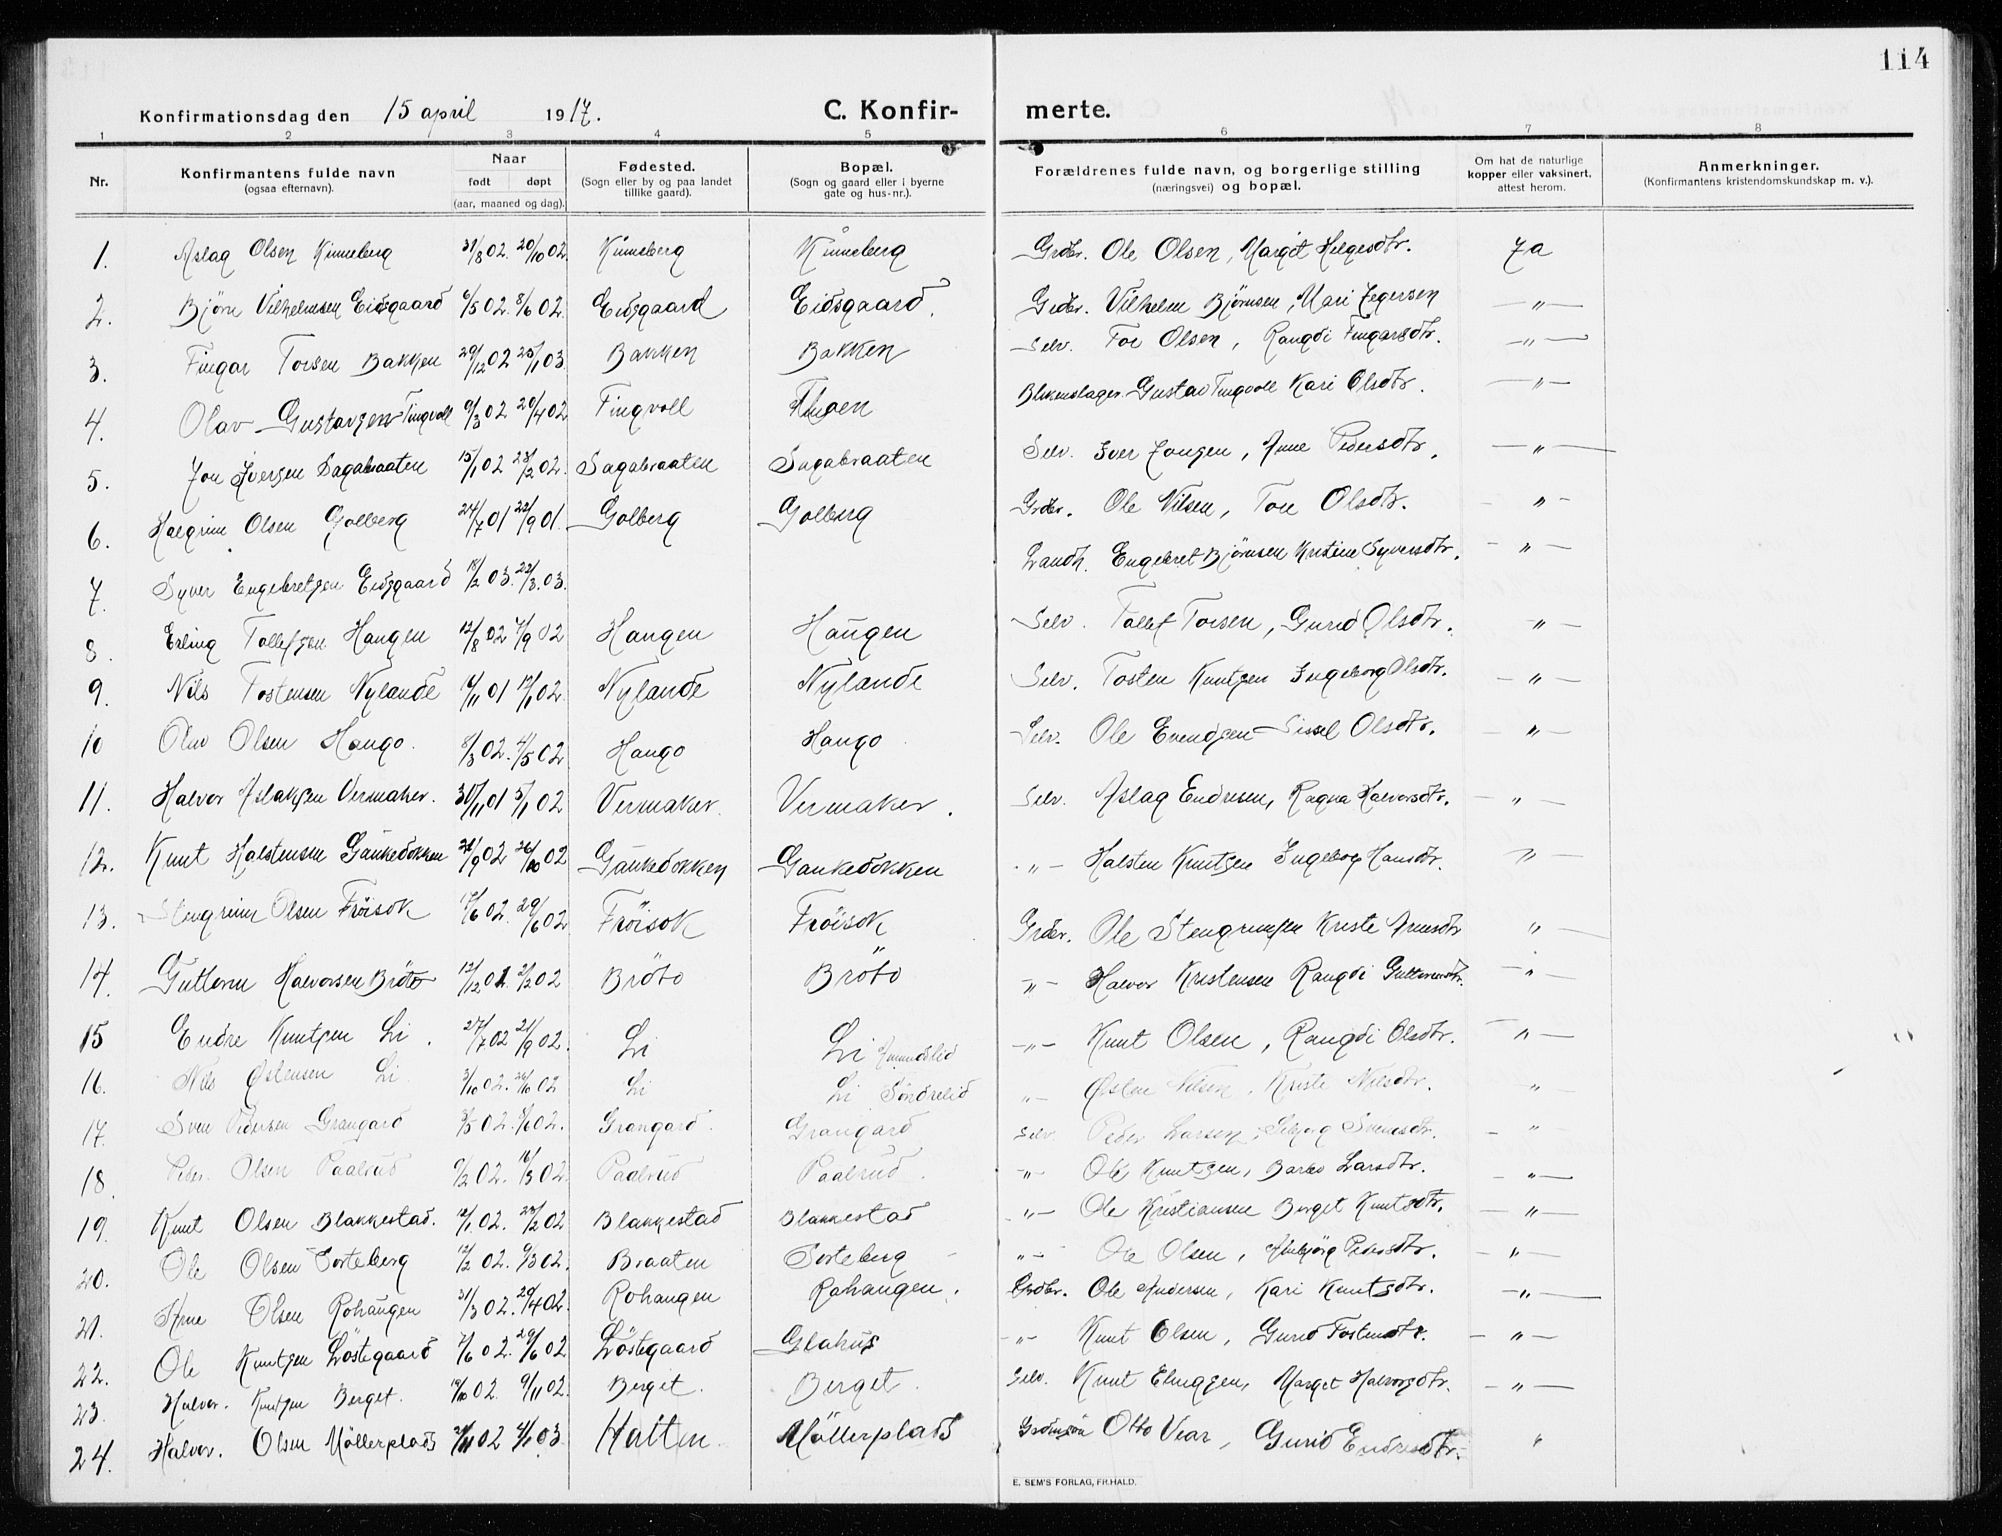 114
Konfirmationsdag den 15 april 1917. C. Konfir- merte.
1 2 3 4 5 6 7 8
Nr. Konfirmantens fulde navn (ogsaa efternavn). Naar født døpt (aar, maaned og dag). Fødested. (Sogn eller by og paa landet tillike gaard). Bopæl. (Sogn og gaard eller i byerne gate og hus-nr.). Forældrenes fulde navn, og borgerlige stilling (næringsvei) og bopæl. Om hat de naturlige kopper eller vaksinert, attest herom. Anmerkninger. (Konfirmantens kristendomskundskap m. v.).
1. Aslag Olsen Kinneberg 31/8 02. 20/10 02. Kinneberg Kinneberg Grdbr. Ole Olsen, Margit Helgesdtr. Ja
2. Bjørn Vilhelmsen Eidsgaard 6/5 02. 8/6 02. Eidsgaard Eidsgaard. Grdbr. Vilhelm Bjørnsen, Mari —"—
3. Fingar Torsen Bakken 29/12 02 25/1 03. Bakken Bakken Selv. Tor Olsen, Rangdi Fingarsdtr. —"—
4. Olav Gustavsen Tingvoll 9/3 02 20/4 02 Tingvoll Blikenslager Gustav Tingvoll Kari Olsdtr. —"—
5. Jon Iversen Sagabraaten 15/1 02 23/2 02. Sagabraaten Sagabraaten Selv. Iver Jonsen, Anne Pedersdtr. —"—
6. Halgrim Olsen Golberg 24/7 01 22/9 01. Golberg Golberg Grdbr. Ole Nilsen, Tone Olsdtr. —"—
7. Syver Engebretsen Eidsgaard 18/2 03. 22/3. 03. Landh. Engebret Bjørnsen Kristine Syversdtr. —"—
8. Erling Tollefsen Haugen 12/8 02 7/9 02 Haugen Haugen Selv. Tollef Torsen, Gurid Olsdtr. —"—
9. Nils Tostensen Nylande 01 02. Nylande Nylande Selv. Tosten Knutsen Ingeborg Olsdtr. —"—
10 Olav Olsen Haugo. 8/3 02. 4/5 02 Haugo Haugo Selv. Ole Evensen Sissel Olsdtr. —"—
11. Halvor Aslaksen Vermaker. 30/11 01 5/1 02 Vermaker. Vermaker. Selv. Aslag Endresen, Ragna Halvorsdtr. —"—
12. Knut Halstensen Gaukedokken 21/9 02 26/10 02 Gaukedokken Gaukedokken "— Halsten Knutsen Ingeborg Hansdtr. —"—
13. Stengrim Olsen Frøisok 17/6 02. 29/6 02 Frøisok Frøisok Grdbr. Ole Stengrimsen Kriste Arnesdtr "—
14. Guttorm Halvorsen Brøto 12/12 01. 2/2 02 Brøto Brøto "— Halvor Kristensen Rangdi Guttormsdtr. —"—
15 Endre Knutsen Li. 27/7 02 21/9 02. Li Li Amundslid —"— Knut Olsen, Rangdi Olsdtr. —"—
16. Nils Østensen Li 3/10 02. 26/10 02 Li Li Søndrelid "— Østen Nilsen, Kriste Nilsdtr. "
17. Sven Pedersen Grangard 3/5 02. 02. Grangard. Grangard Selv. Peder Larsen, Svensdtr. —"
18. Peder Olsen Paalrud 9/2 02. 16/3 02. Paalrud Paalrud. "— Ole Knutsen, Barbo Larsdtr. —"—
19. Knut Olsen Blakkestad. 12/1. 02. 23/2 02 Blakkestad Blakkestad "— Ole Kristiansen Berget Knutsdtr. —"—
20. Ole Olsen Sorteberg 12/2 02. 9/3 02. Braaten Sorteberg "— Ole Olsen, Pedersdtr. —"—
21. Arne Olsen Rohaugen 31/3 02. 20/4 02. Rohaugen Rohaugen. Grdbr. Ole Andersen, Kari Knutsdtr. —"—
22. Ole Knutsen Løstegaard 7/6 02. 29/6 02 Løstegaard Glahus —"— Knut Olsen, Gurid Tostensdtr. —"—
23. Halvor. Knutsen Berget. 19/10 02. 9/11 02. Berget. Berget. Selv. Knut Elingsen, Marget Halvorsdtr. —"—
24. Halvor. Olsen Møllerplads 02 4/1. 03. Halten Møllerplads Grdmsøn Otto Viar, Gurid Endresdtr. "
E. SEM'S FORLAG, FR.HALD.